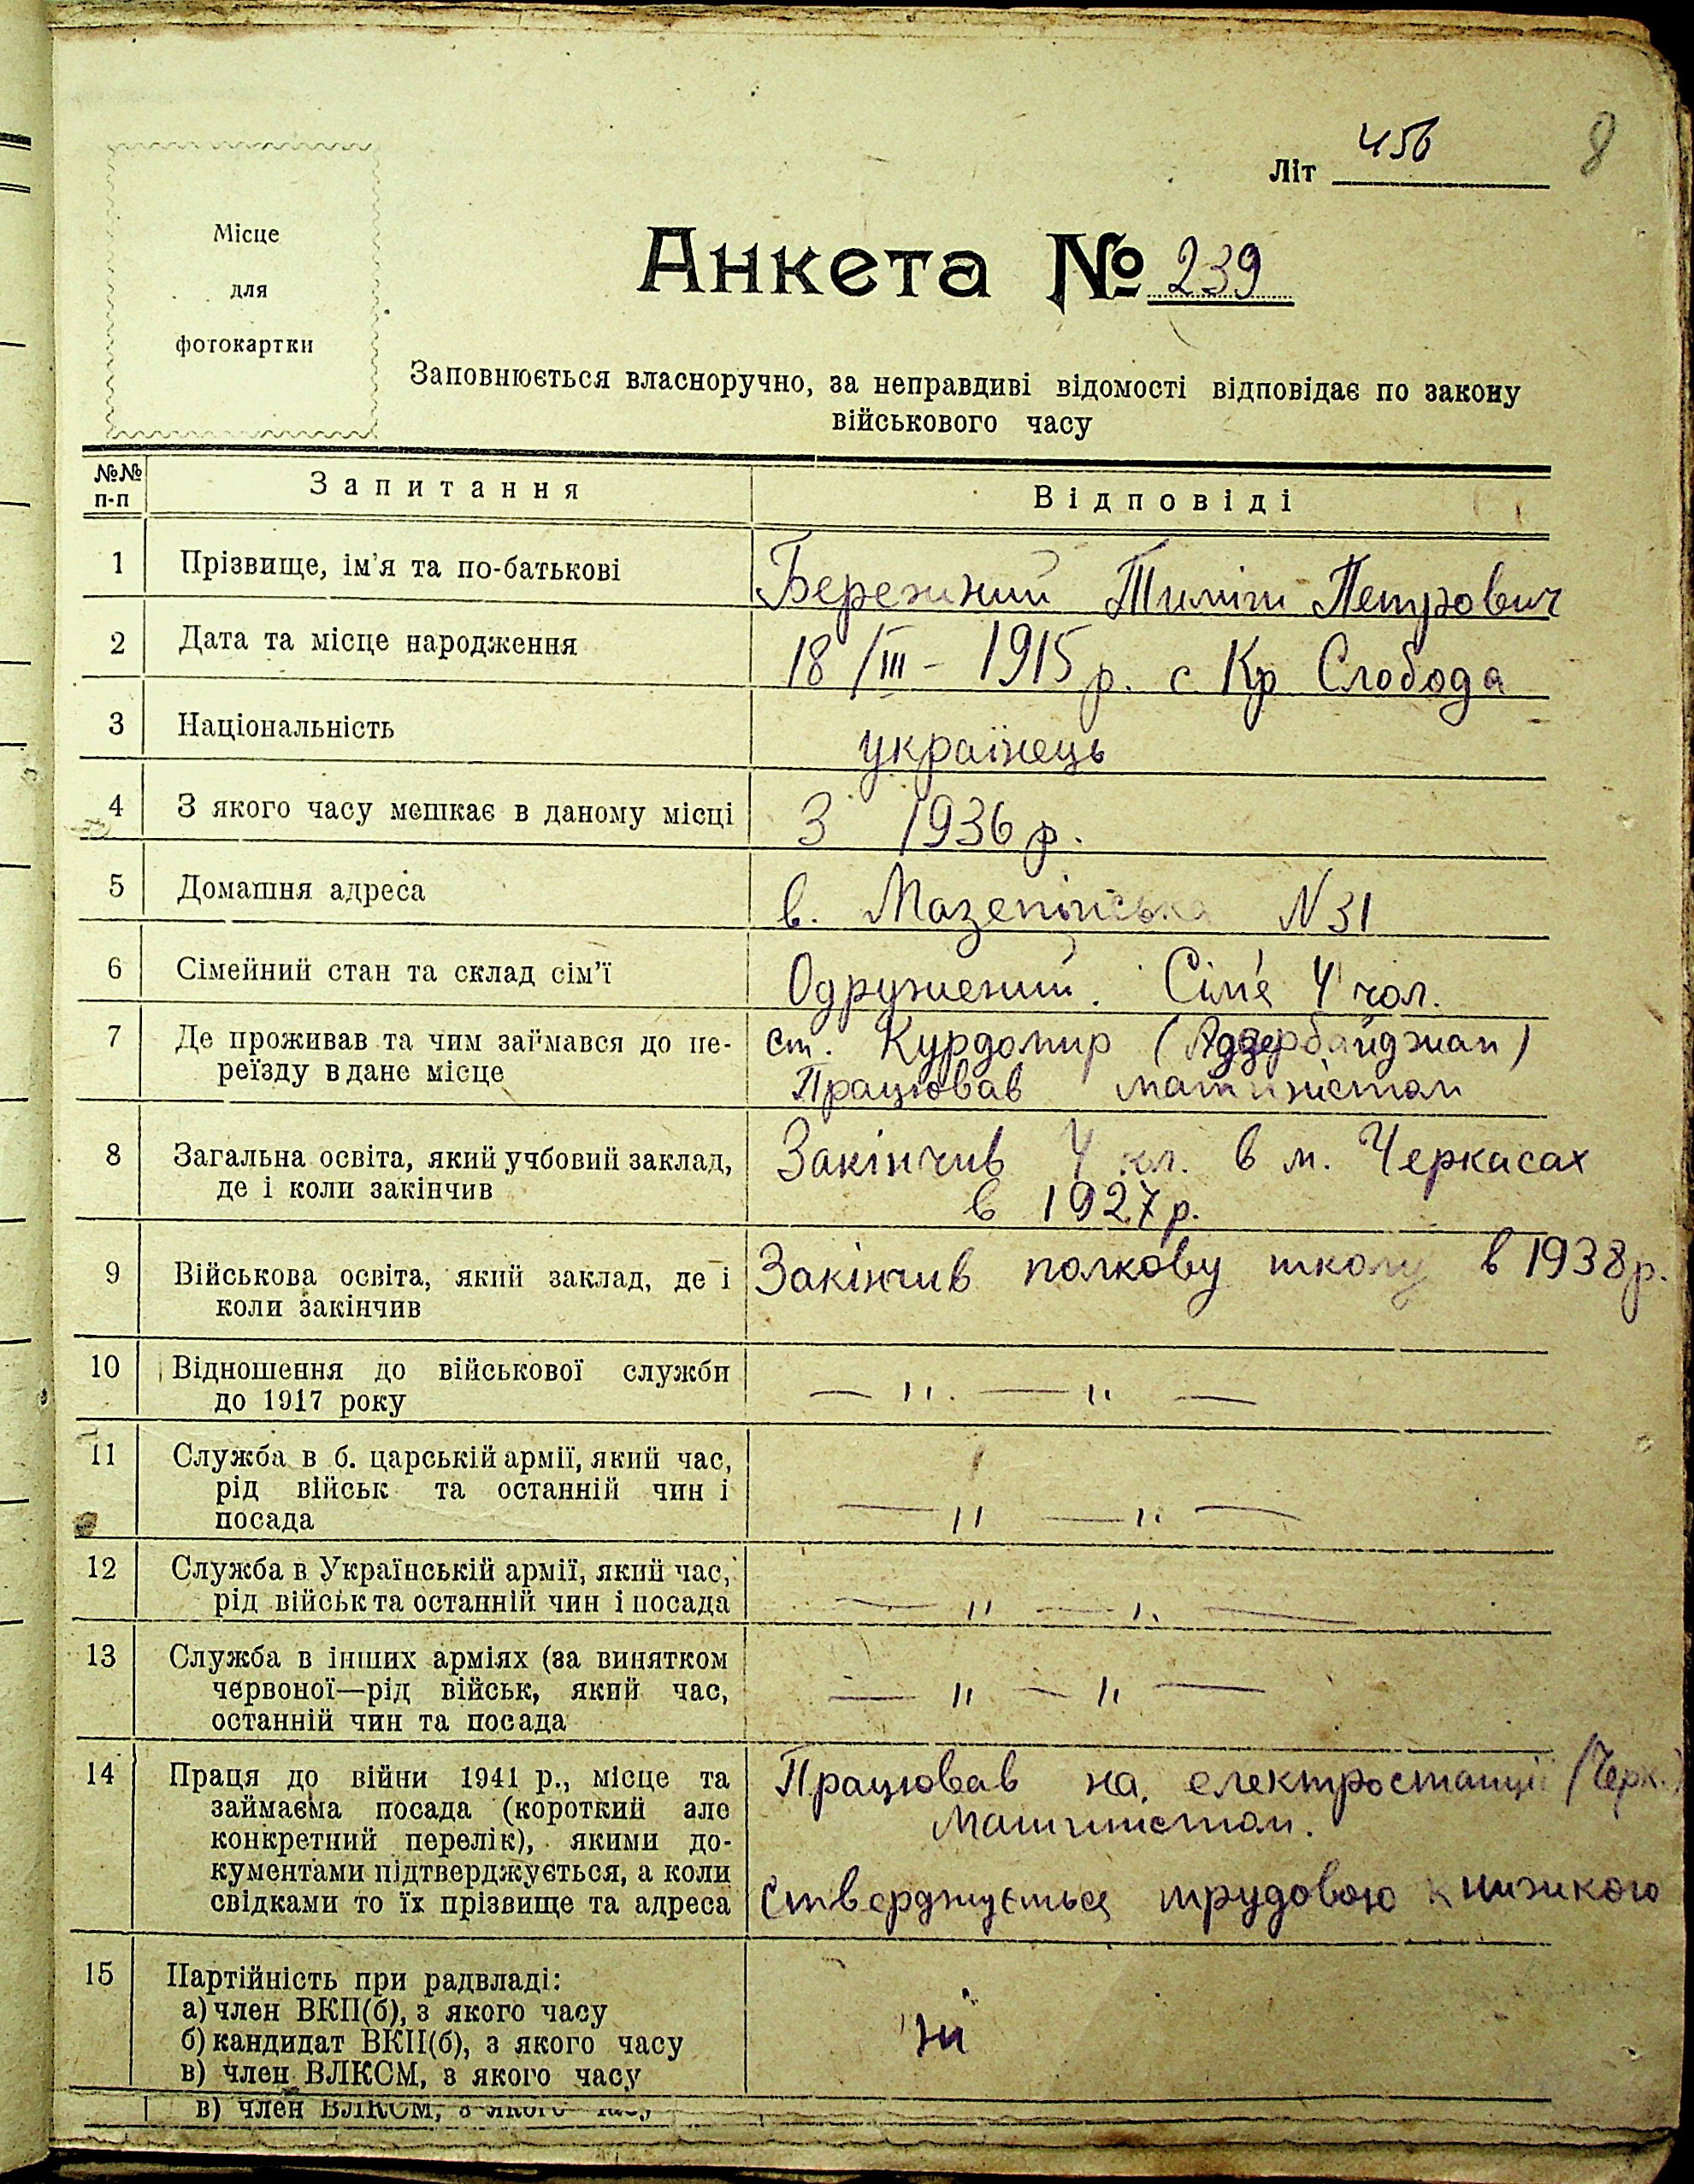 8
Літ 456
Місце
для
фотокартки
Анкета № 239
Заповнюється власноручно, за неправдиві відомості відповідає по закону
військового часу
№№ п-п Запитання Відповіді
1 Прізвище, ім'я та по-батькові Бережний Тиміш Петрович
2 Дата та місце народження 18/III - 1915 р. с Кр Слобода
3 Національність українець
4 З якого часу мешкає в даному місці З 1936 р.
5 Домашня адреса в. Мазепінська N 31
6 Сімейний стан та склад сім'ї Одружений. Сім'я 4 чол.
7 Де проживав та чим займався до пе- ст. Курдомир (Адзербайджан)
реїзду в дане місце Працював машиністом
8 Загальна освіта, який учбовий заклад, Закінчив 4 кл. в м. Черкасах
де і коли закінчив в 1927 р.
9 Військова освіта, який заклад, де і Закінчив полкову школу в 1938 р.
коли закінчив
10 Відношення до військової служби
до 1917 року — " — " —
11 Служба в б. царській армії, який час,
рід військ та останній чин і — " — " —
посада
12 Служба в Українській армії, який час,
рід військ та останній чин і посада — " — " —
13 Служба в інших арміях (за винятком
червоної—рід військ, який час, — " — " —
останній чин та посада
14 Праця до війни 1941 р., місце та Працював на електростанції (Черк.)
займаєма посада (короткий але машиністом.
конкретний перелік), якими до-
кументами підтверджується, а коли
свідками то їх прізвище та адреса Стверджується трудовою книжкою
15 Партійність при радвладі:
а) член ВКП(б), з якого часу
б) кандидат ВКП(б), з якого часу ні
в) член ВЛКСМ, з якого часу
в) член ВЛКСМ, з якого часу